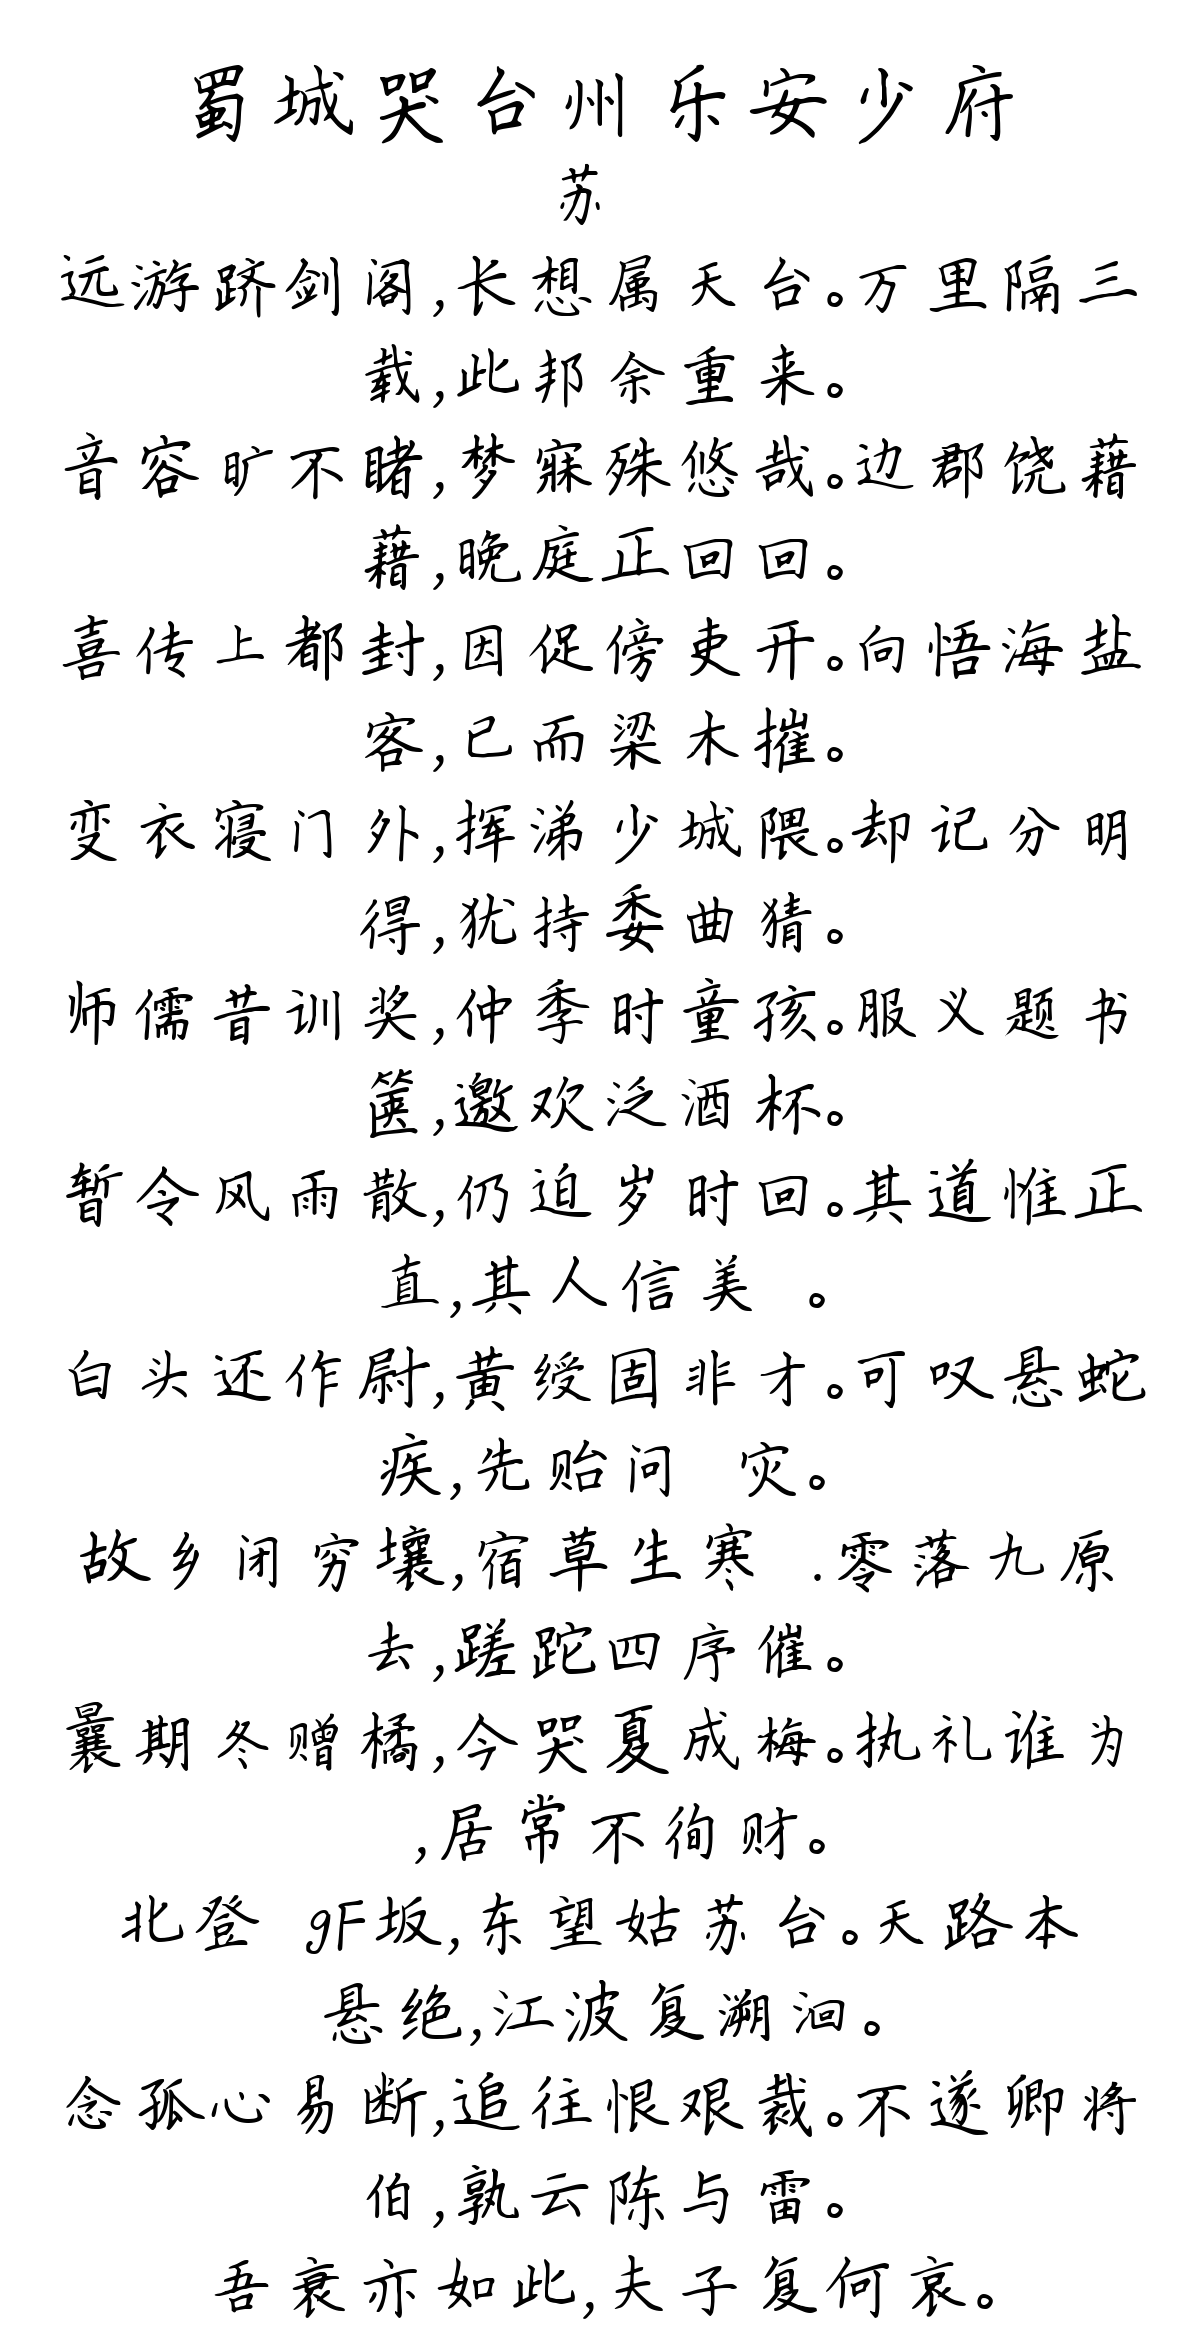 蜀城哭台州乐安少府
苏
远游跻剑阁,长想属天台。万里隔三
载,此邦余重来。
音容旷不睹,梦寐殊悠哉。边郡饶藉
藉,晚庭正回回。
喜传上都封,因促傍吏开。向悟海盐
客,已而梁木摧。
变衣寝门外,挥涕少城隈。却记分明
得,犹持委曲猜。
师儒昔训奖,仲季时童孩。服义题书
箧,邀欢泛酒杯。
暂令风雨散,仍迫岁时回。其道惟正
直,其人信美 。
白头还作尉,黄绶固非才。可叹悬蛇
疾,先贻问 灾。
故乡闭穷壤,宿草生寒 .零落九原
去,蹉跎四序催。
曩期冬赠橘,今哭夏成梅。执礼谁为
,居常不徇财。
北登 gF坂,东望姑苏台。天路本
悬绝,江波复溯洄。
念孤心易断,追往恨艰裁。不遂卿将
伯,孰云陈与雷。
吾衰亦如此,夫子复何哀。